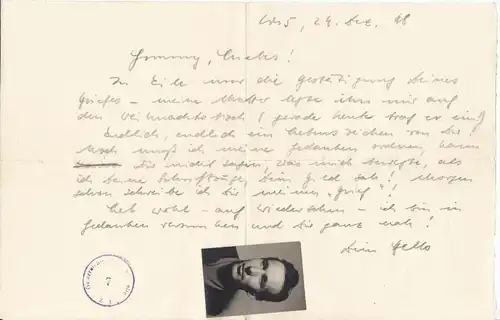 24. Dez. 48
In Eile nur die Bestätigung Deines
Briefes – meine Mutter legte ihn mir auf
den Weihnachtstisch (gerade heute traf er ein)!
Endlich, endlich ein Lebenszeichen von Dir
Noch muß ich meine Gedanken ordnen, kann
Dir nicht sagen, was mich bewegte, als
ich Deine Schriftzüge beim
schon schreibe ich Dir meinen „Brief“!
Leb wohl – auf Wiedersehen – ich bin in
Gedanken und Dir ganz nah!
Dein
7